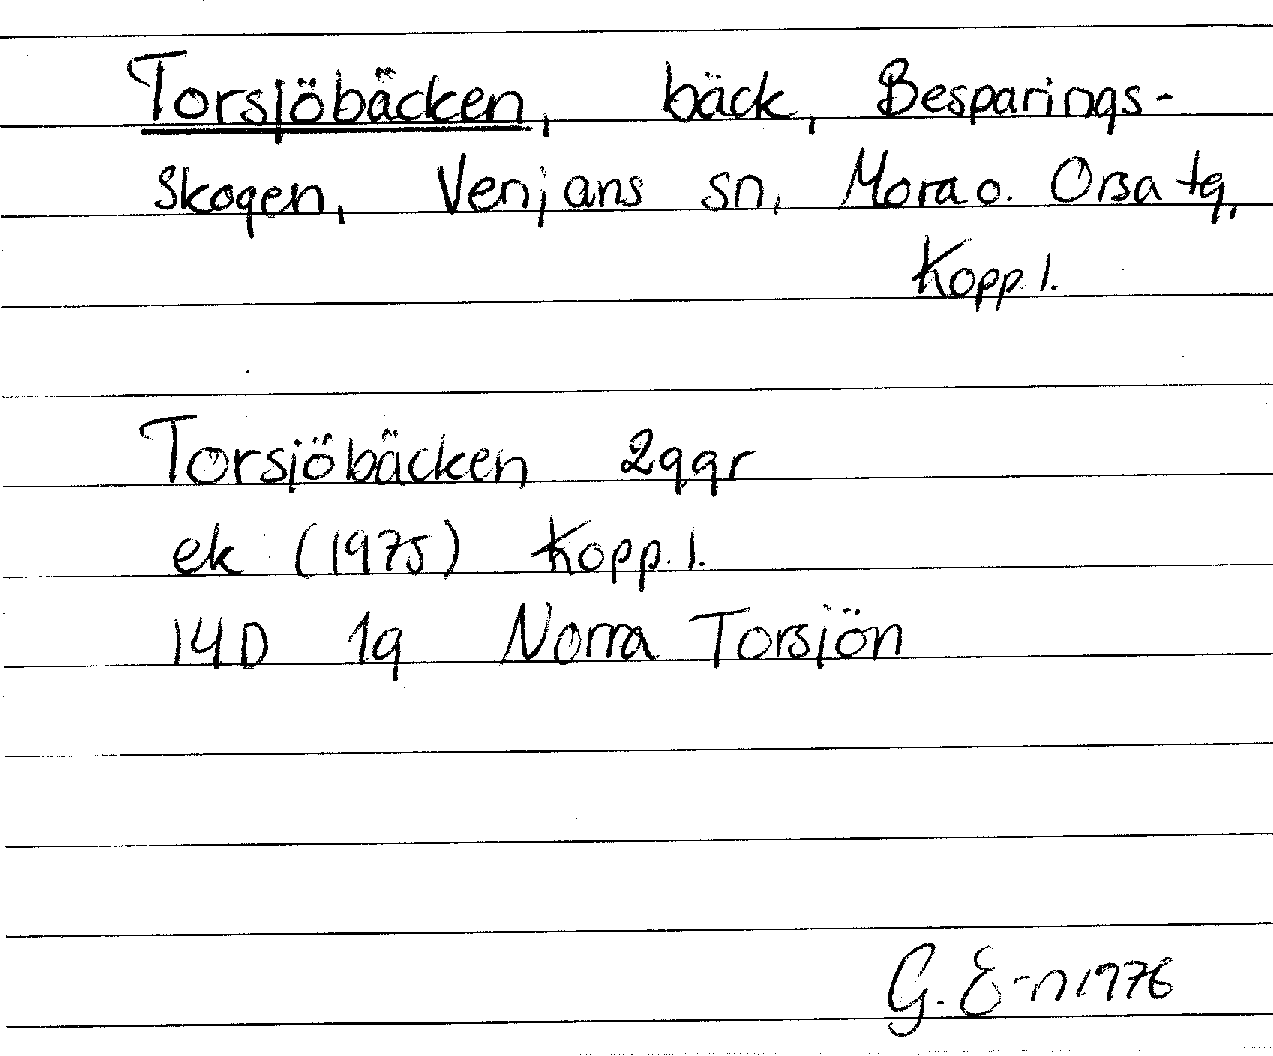 Torsjöbäcken, bäck, Besparings-
skogen, Venjans sn, Mora o. Orsa tg,
Kopp. l.
Torsjöbäcken 2ggr
ek (1975) Kopp. l.
14D 1g Norra Torsjön
G. E-n 1976